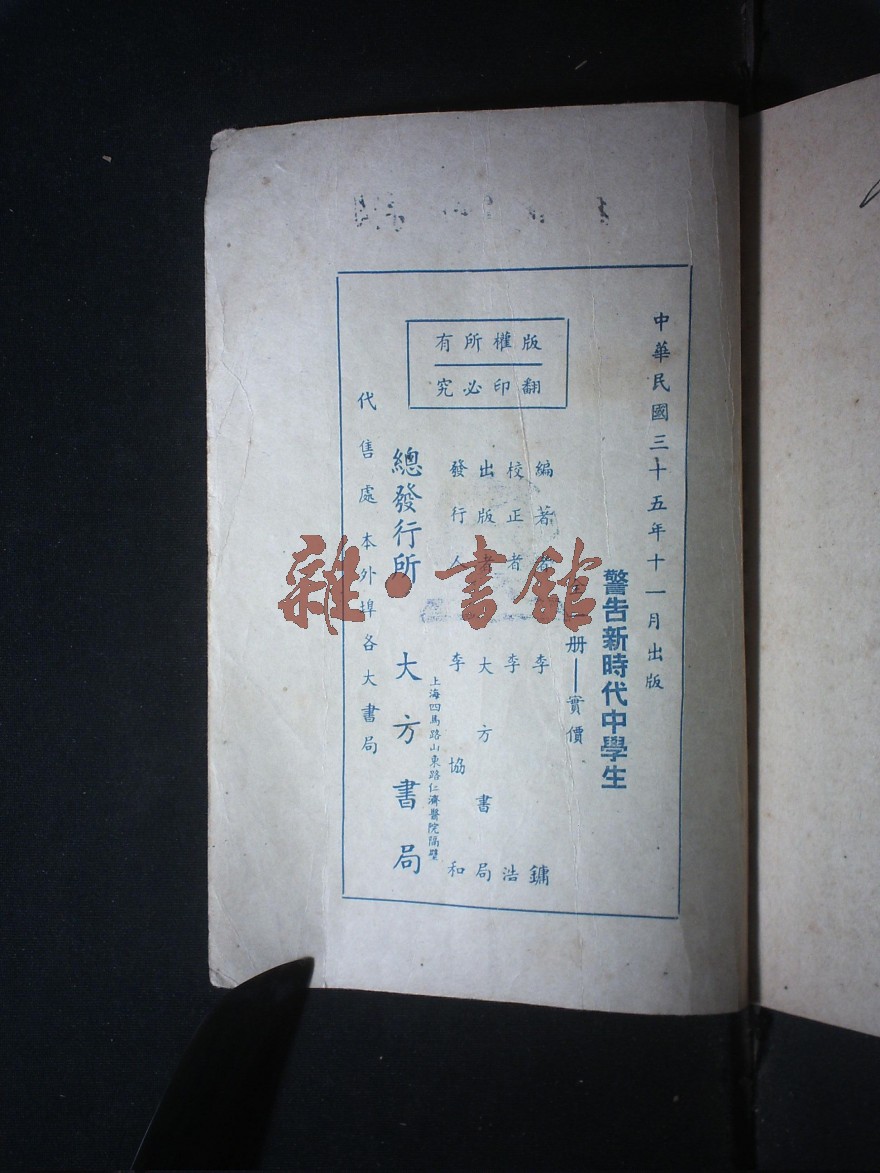 中華民國三十五年十一月出版
警告新時代中學生
一册——實價
版權所有
翻印必究
編著者 李鏞
校正者 李浩
出版者 大方書局
發行人 李協和
上海四馬路山東路仁濟醫院隔壁
總發行所 大方書局
代售處 本外埠各大書局
雜·書館